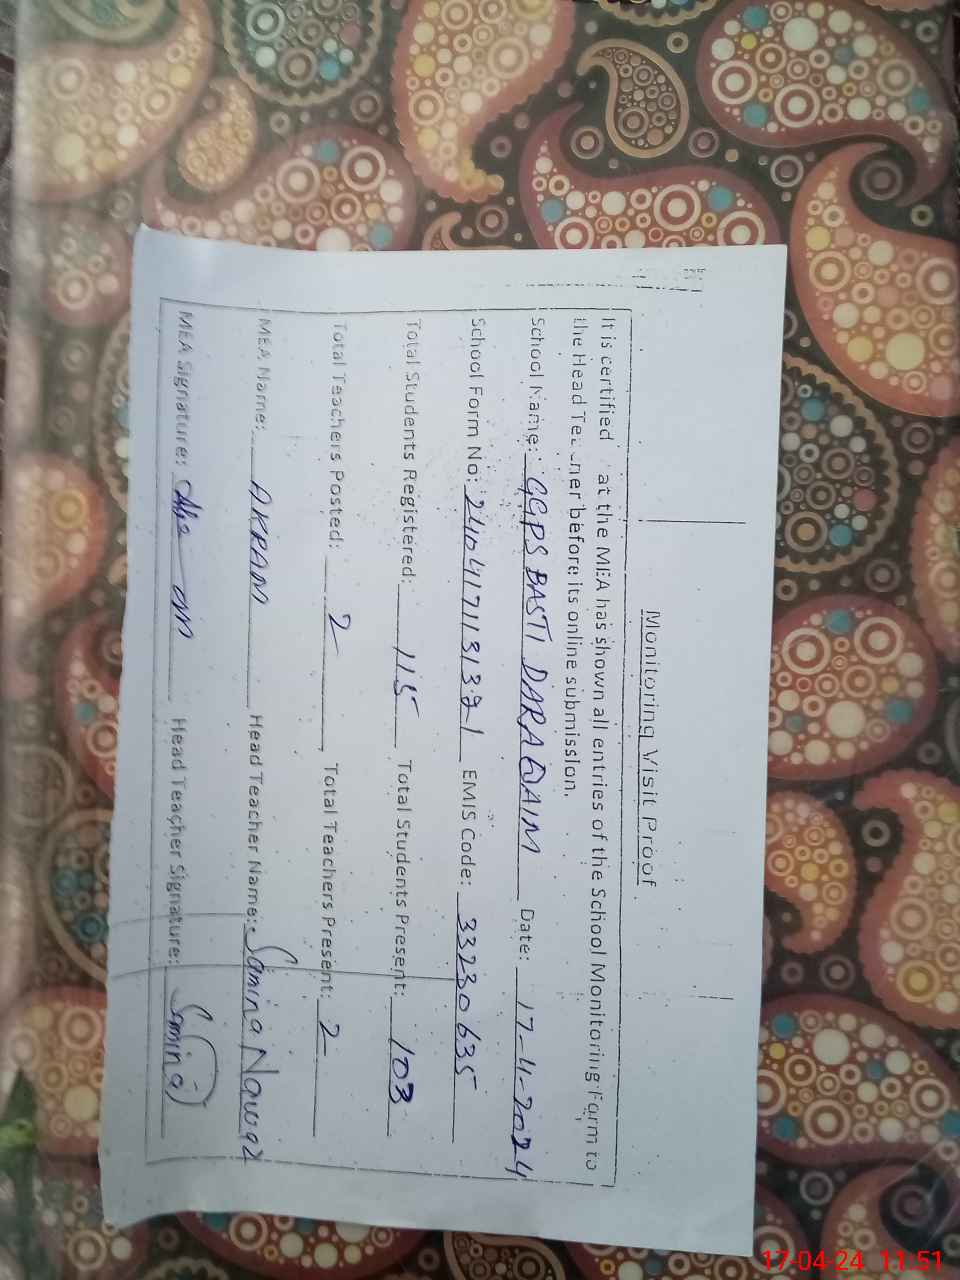 Monitoring Visit Proof
It is certified at the MEA has shown all entries of the School Monitoring Form to
the Head Teacher before its online submission.
School Name: GGPS BASTI DARA QAIM Date: 17-4-2024
School Form No: EMIS Code: 33230635
Total Students Registered: 115 Total Students Present: 103
Total Teachers Posted: 2 Total Teachers Present: 2
MEA Name: AKRAM Head Teacher Name: Samina Nawaz
MEA Signature: Head Teacher Signature: Samina
17-04-24 11:51